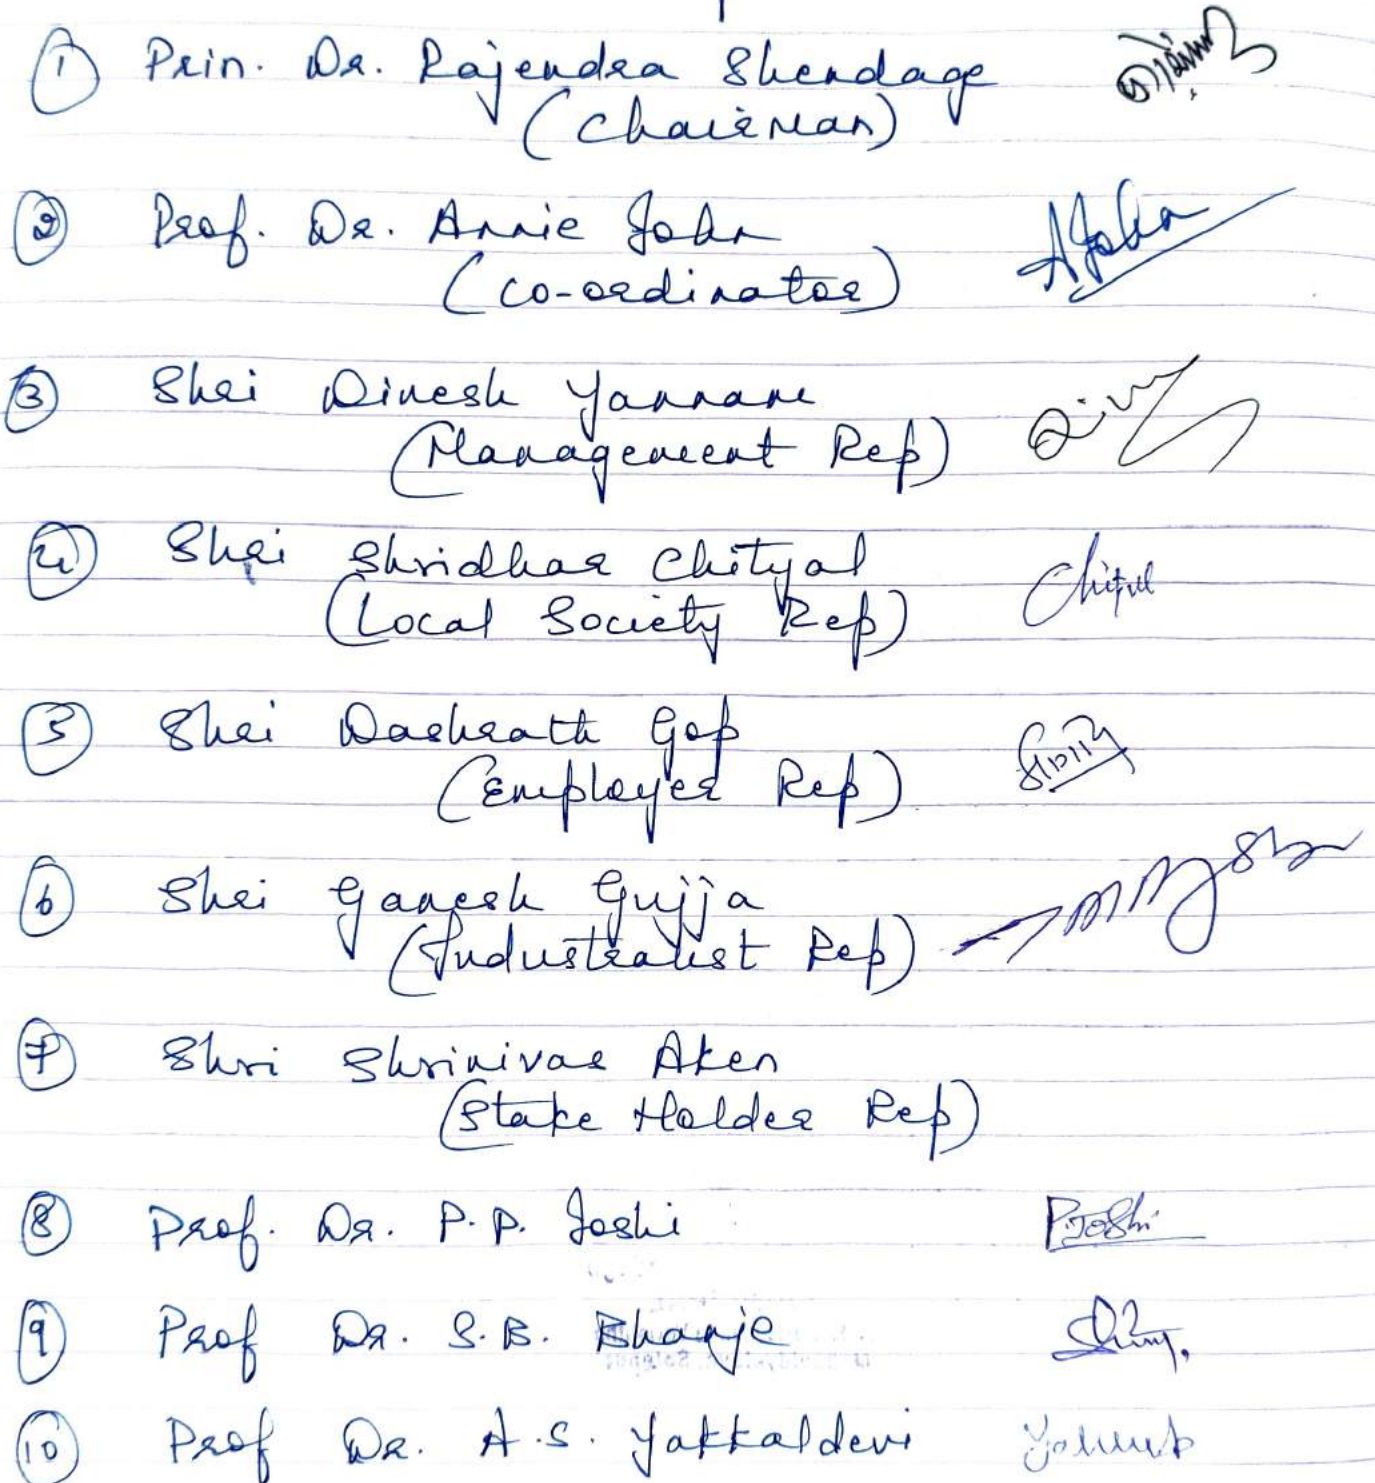 1 Prin. Dr. Rajendra Shendage
(Chairman)
2 Prof. Dr. Annie John AJohn
(Co-ordinator)
3 Shri Dinesh Yannam
(Management Rep)
4 Shri Shridhar Chityal
(Local Society Rep)
5 Shri Dashrath Gop
(Employer Rep)
6 Shri Ganesh Gujja
(Industralist Rep)
7 Shri Shrinivas Aken
(Stake Holder Rep)
8 Prof. Dr. P.P. Joshi PJoshi
9 Prof Dr. S.B. Bhanje
10 Prof Dr. A.S. Yakkaldevi